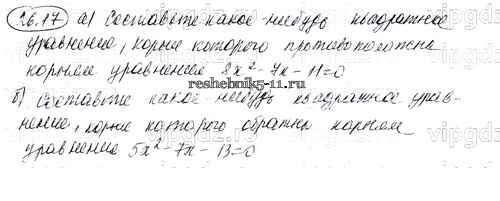 26.17 а) Составьте какое-нибудь квадратное
уравнение, корни которого противоположны
корням уравнения 8x² - 7x - 11 = 0
www.reshebnik5-11.ru
б) Составьте какое-нибудь квадратное урав-
нение, корни которого обратны корням
уравнения 5x² - 7x - 13 = 0